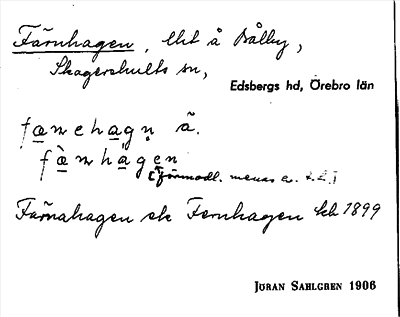 Färnhagen, lht å Bålby,
Skagershults sn,
Edsbergs hd, Örebro län
fænehagn ã.
fæ̀nhāgen
[förmodl. menas
Färnahagen ek Fernhagen kh 1899
JÖRAN SAHLGREN 1906